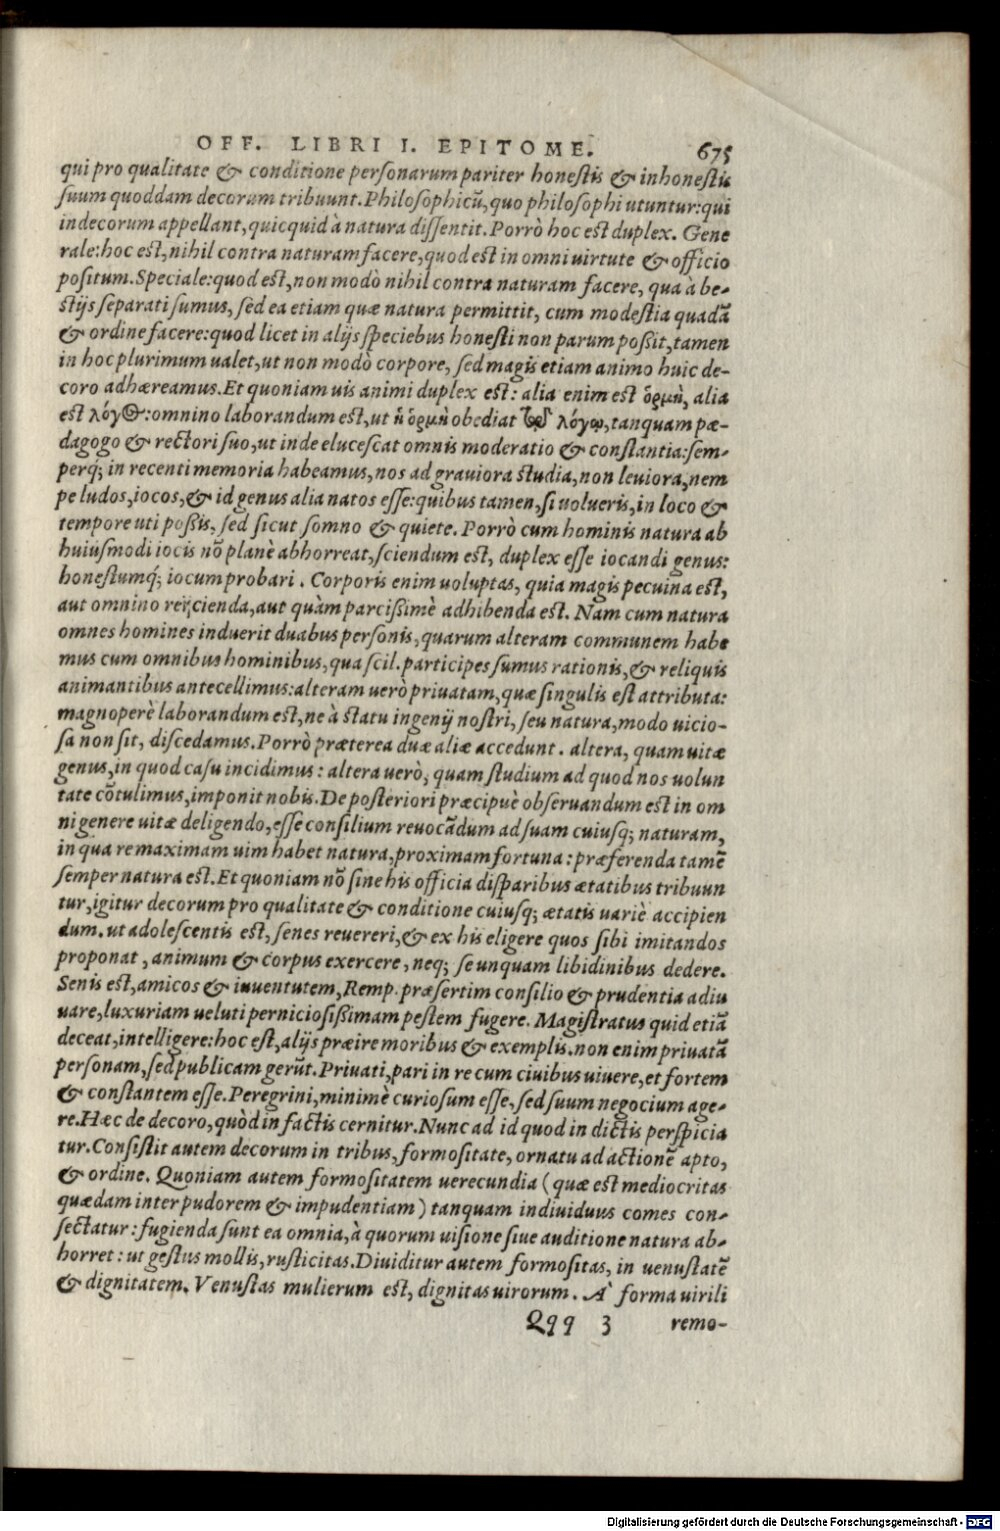 OFF. LIBRI I. EPITOME. 675
qui pro qualitate & conditione perſonarum pariter honeſtis & inhoneſtis
ſuum quoddam decorum tribuunt. Philoſophicū, quo philoſophi utuntur: qui
indecorum appellant, quicquid à natura diſſentit. Porrò hoc eſt duplex. Gene
rale: hoc eſt, nihil contra naturam facere, quod eſt in omni uirtute & officio
poſitum. Speciale: quod eſt, non modò nihil contra naturam facere, qua à be-
ſtijs ſeparati ſumus, ſed ea etiam quæ natura permittit, cum modeſtia quadā
& ordine facere: quod licet in alijs ſpeciebus honeſti non parum poßit, tamen
in hoc plurimum ualet, ut non modò corpore, ſed magis etiam animo huic de-
coro adhæreamus. Et quoniam uis animi duplex eſt: alia enim eſt ὁρμὴ, alia
eſt λόγος: omnino laborandum eſt, ut ἡ ὁρμὴ obediat τῷ λόγῳ, tanquam pæ-
dagogo & rectori ſuo, ut inde eluceſcat omnis moderatio & conſtantia: ſem-
perq́; in recenti memoria habeamus, nos ad grauiora ſtudia, non leuiora, nem
pe ludos, iocos, & id genus alia natos eſſe: quibus tamen, ſi uolueris, in loco &
tempore uti poßis, ſed ſicut ſomno & quiete. Porrò cum hominis natura ab
huiuſmodi iocis nō planè abhorreat, ſciendum eſt, duplex eſſe iocandi genus:
honeſtumq́; iocum probari. Corporis enim uoluptas, quia magis pecuina eſt,
aut omnino reijcienda, aut quàm parcißimè adhibenda eſt. Nam cum natura
omnes homines induerit duabus perſonis, quarum alteram communem habe
mus cum omnibus hominibus, qua ſcil. participes ſumus rationis, & reliquis
animantibus antecellimus: alteram uerò priuatam, quæ ſingulis eſt attributa:
magnoperè laborandum eſt, ne à ſtatu ingenij noſtri, ſeu natura, modo uicio-
ſa non ſit, diſcedamus. Porrò præterea duæ aliæ accedunt. altera, quam uitæ
genus, in quod caſu incidimus: altera uerò, quam ſtudium ad quod nos uolun
tate cōtulimus, imponit nobis. De poſteriori præcipuè obſeruandum eſt in om
ni genere uitæ deligendo, eſſe conſilium reuocādum ad ſuam cuiuſq; naturam,
in qua re maximam uim habet natura, proximam fortuna: præferenda tamē
ſemper natura eſt. Et quoniam nō ſine his officia diſparibus ætatibus tribuun
tur, igitur decorum pro qualitate & conditione cuiuſq; ætatis uariè accipien
dum. ut adoleſcentis eſt, ſenes reuereri, & ex his eligere quos ſibi imitandos
proponat, animum & corpus exercere, neq; ſe unquam libidinibus dedere.
Senis eſt, amicos & iuuentutem, Remp. præſertim conſilio & prudentia adiu
uare, luxuriam ueluti pernicioſißimam peſtem fugere. Magiſtratus quid etiā
deceat, intelligere: hoc eſt, alijs præire moribus & exemplis. non enim priuatā
perſonam, ſed publicam gerūt. Priuati, pari in re cum ciuibus uiuere, et fortem
& conſtantem eſſe. Peregrini, minimè curioſum eſſe, ſed ſuum negocium age-
re. Hæc de decoro, quòd in factis cernitur. Nunc ad id quod in dictis perſpicia
tur. Conſiſtit autem decorum in tribus, formoſitate, ornatu ad actionē apto,
& ordine. Quoniam autem formoſitatem uerecundia (quæ eſt mediocritas
quædam inter pudorem & impudentiam) tanquam indiuiduus comes con-
ſectatur: fugienda ſunt ea omnia, à quorum uiſione ſiue auditione natura ab-
horret: ut geſtus mollis, ruſticitas. Diuiditur autem formoſitas, in uenuſtatē
& dignitatem. Venuſtas mulierum eſt, dignitas uirorum. A' forma uirili
Qqq 3 remo-
Digitalisierung gefördert durch die Deutsche Forschungsgemeinschaft - DFG